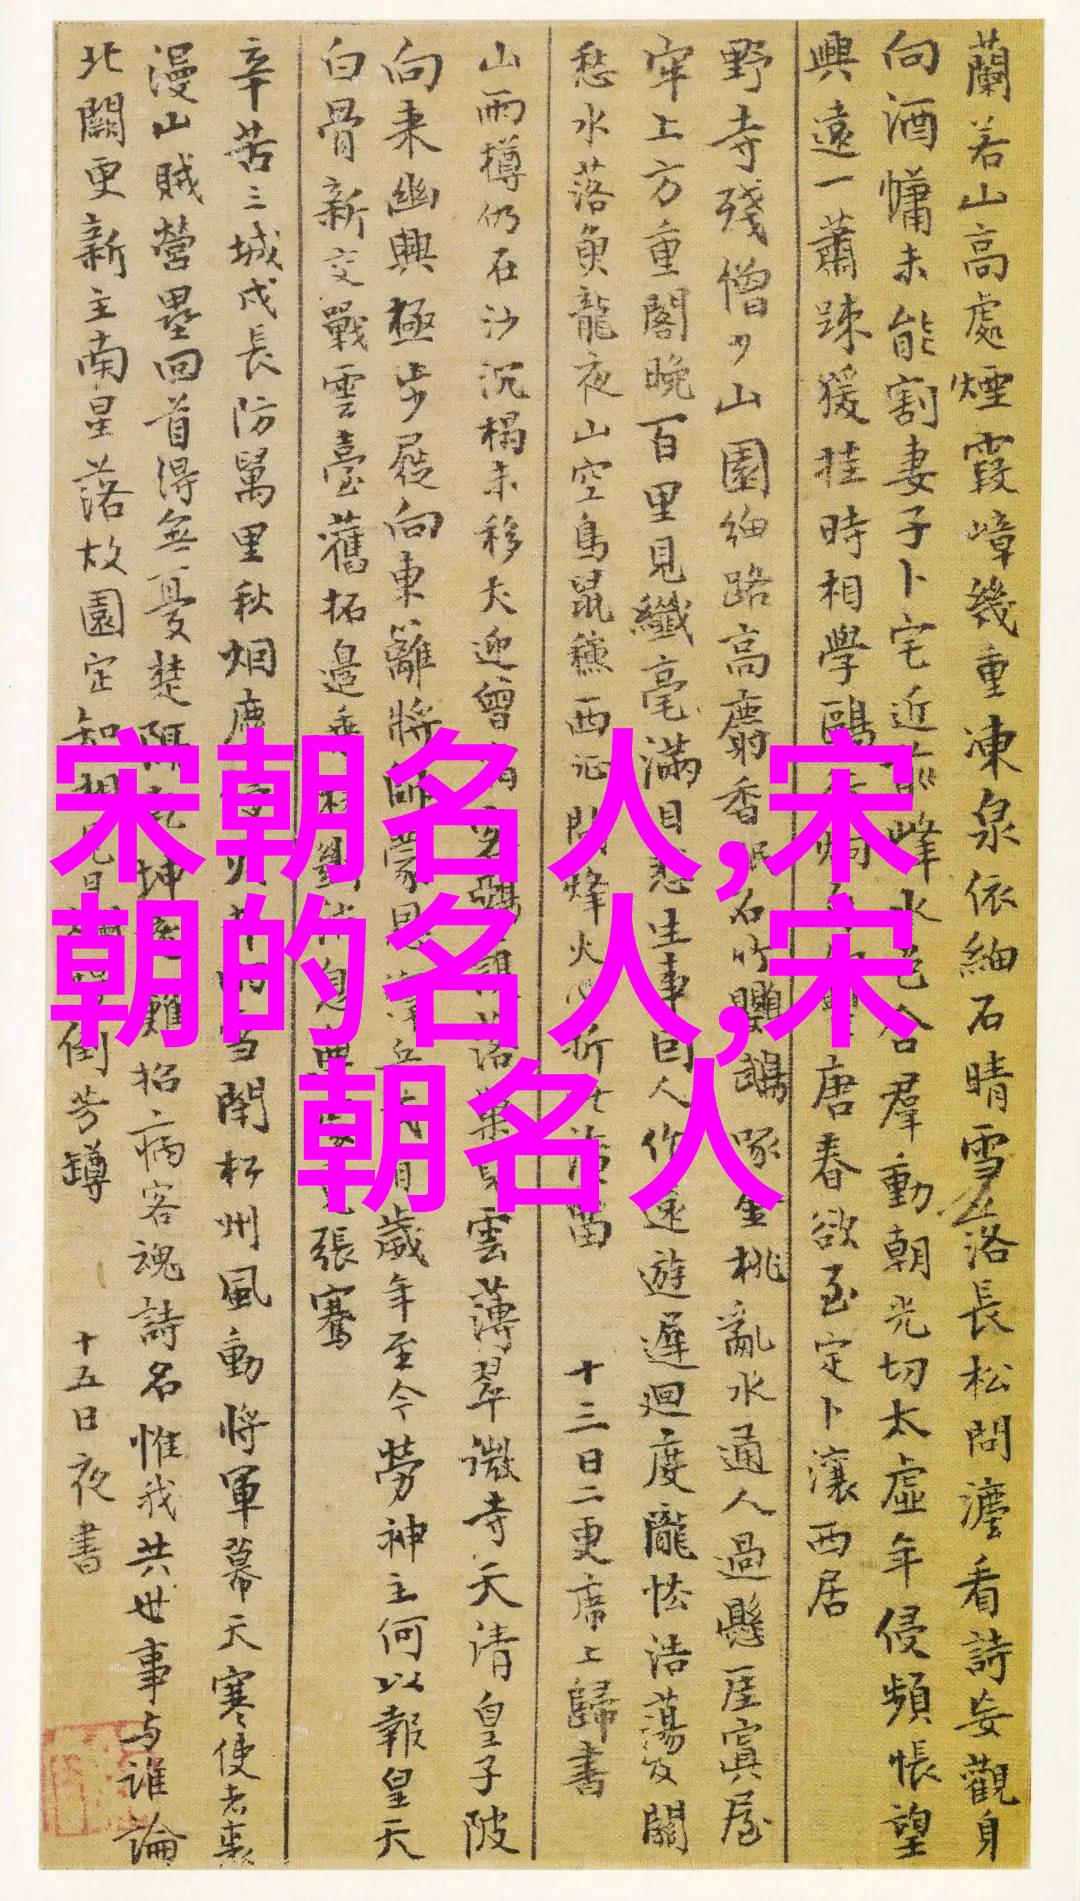 蘭若山高處煙霞嶂幾重凍泉依細石晴雪落長松問灋看詩妄觀身
向酒慵未能割妻子卜宅近前峰水色含羣動朝光切太虛年侵頻悵望
興遠一蕭踈猨挂時相學鷗唐春欲至定卜瀼西居
野寺殘僧少山園細路高麝香眠石竹鸚鵡啄金桃亂水通人過懸崖寘屋
牢上方重閣晚百里見纖毫滿目悲生事因人作遠遊遲迴度隴怯浩蕩及關
愁水落魚龍夜山空鳥鼠穐西征問烽火心折此淹留
十三日二更席上歸書
山雨樽仍在沙沉榻未移犬迎曾落雲薄翠微寺天清皇子陂
向来幽興極步屐向東籬將帥蒙恩澤兵戈有歲年至今勞神主何以報皇天
白骨新交戰雲臺舊拓邊乘張騫
辛苦三城戍長防萬里秋烟塵雨當關柝州風動將軍幕天寒使者裘
漫山賊營壘回首得無憂楚隔乾坤遠難招病客魂詩名惟我共世事与誰論
北闕更新主南星落故園定知相見日倒芳罇
十五日夜書
宋朝名人,宋
朝的名人,宋
朝名人